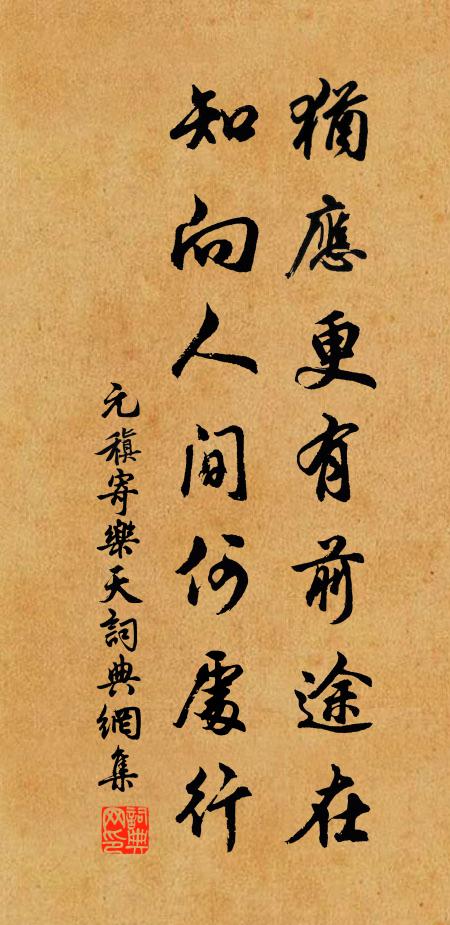 猶應更有前途在
知向人間何處行
元稹寄樂天詞典網集
詞典網印